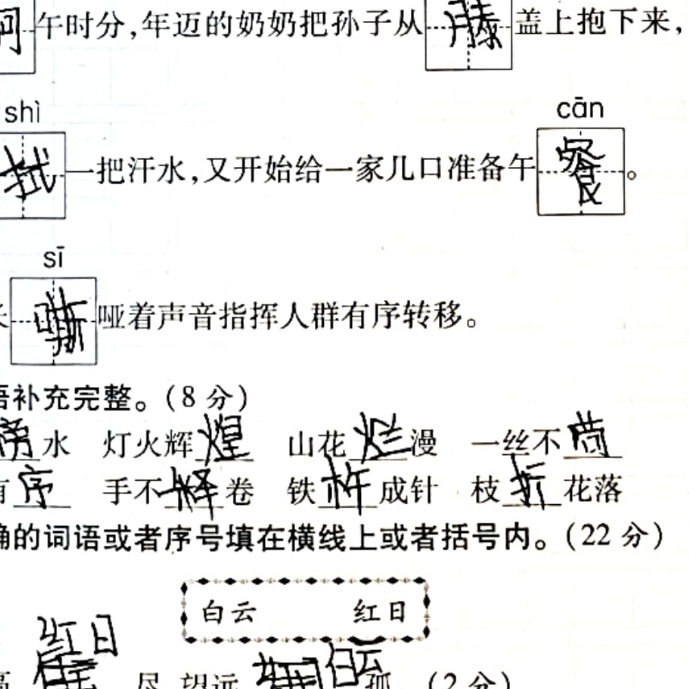 午时分,年迈的奶奶把孙子从膝盖上抱下来,
shì cān
拭一把汗水,又开始给一家几口准备午餐。
sī
嘶哑着声音指挥人群有序转移。
语补充完整。(8分)
水 灯火辉煌 山花烂漫 一丝不苟
有序 手不释卷 铁杵成针 枝折花落
确的词语或者序号填在横线上或者括号内。(22分)
白云 红日
红日
尽 望远 白云 孤 (2分)